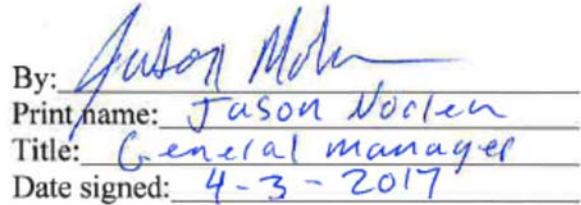 By: Jason
Print name: Jason
Title: General manager
Date signed: 4-3-2017